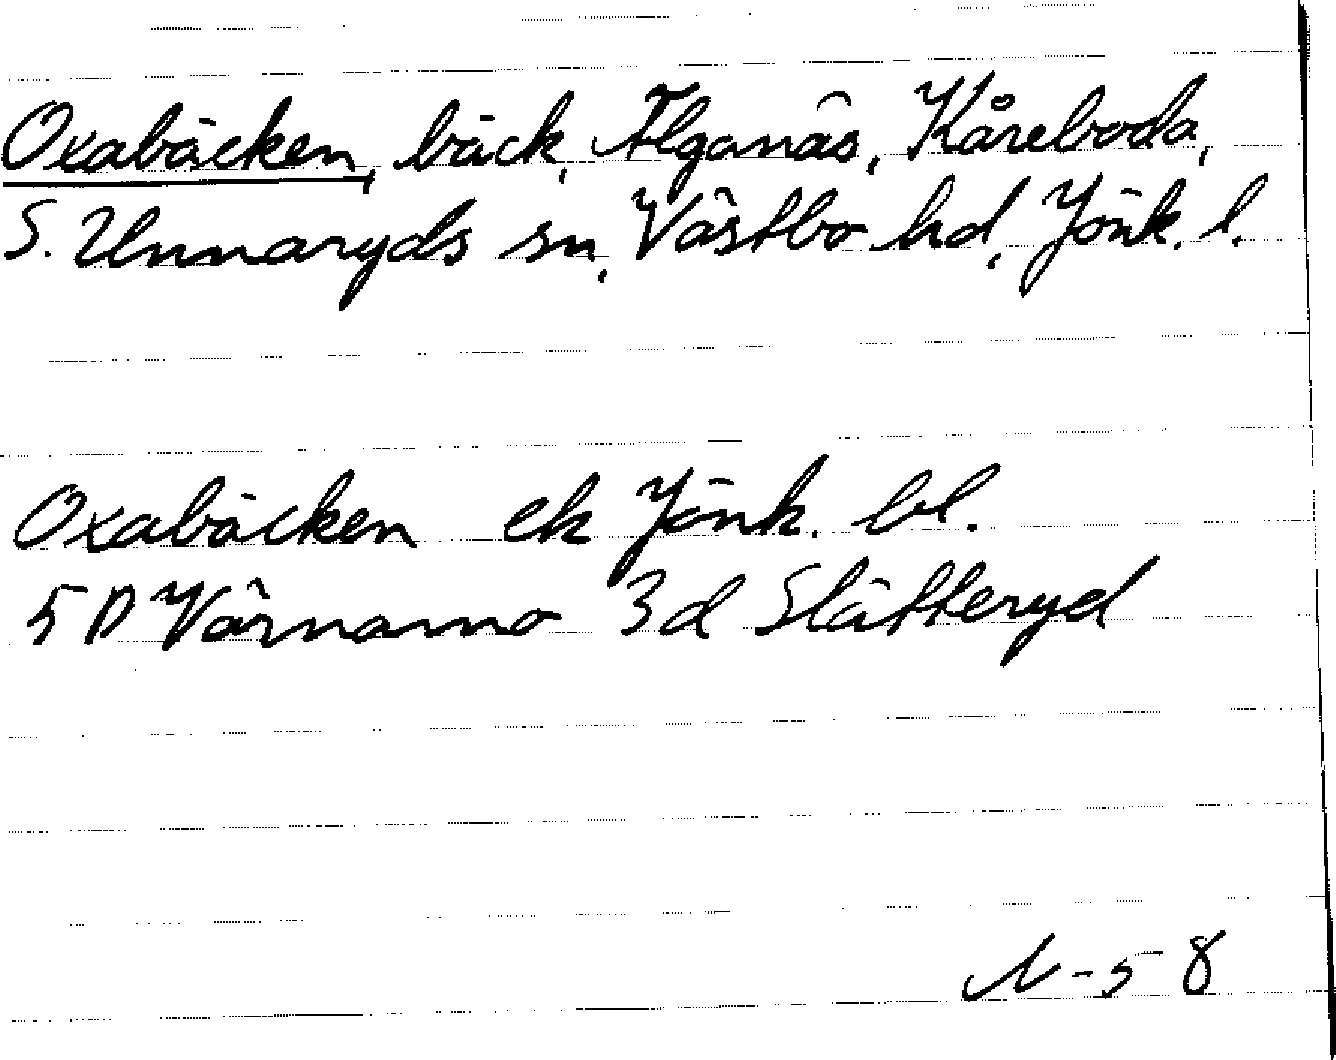 Oxabäcken, bäck, Älganäs, Kåreboda,
S. Unnaryds sn, Västbo hd, Jönk. l.
Oxabäcken ek Jönk. bl.
5 D Värnamo 3d Slätteryd
N-58